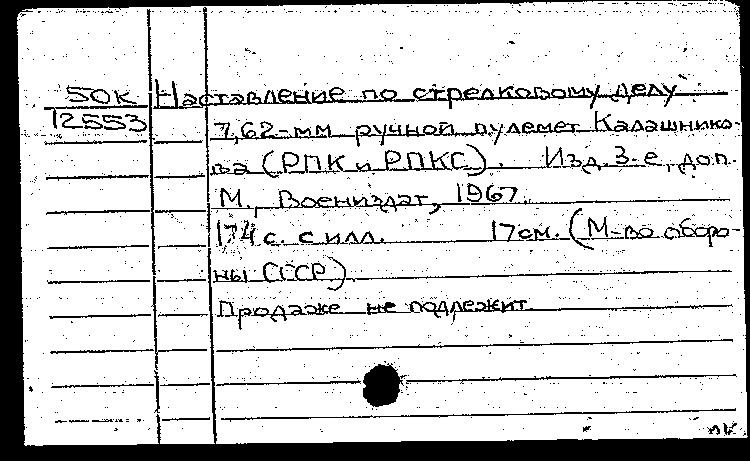 50К Наставление по стрелковому делу:
12553 7,62-мм ручной пулемет Калашнико-
ва (РПК и РПКС). Изд. 3-е, доп.
М., Воениздат, 1967.
174 с. с илл. 17 см. (М-во оборо-
ны СССР).
Продаже не подлежит.